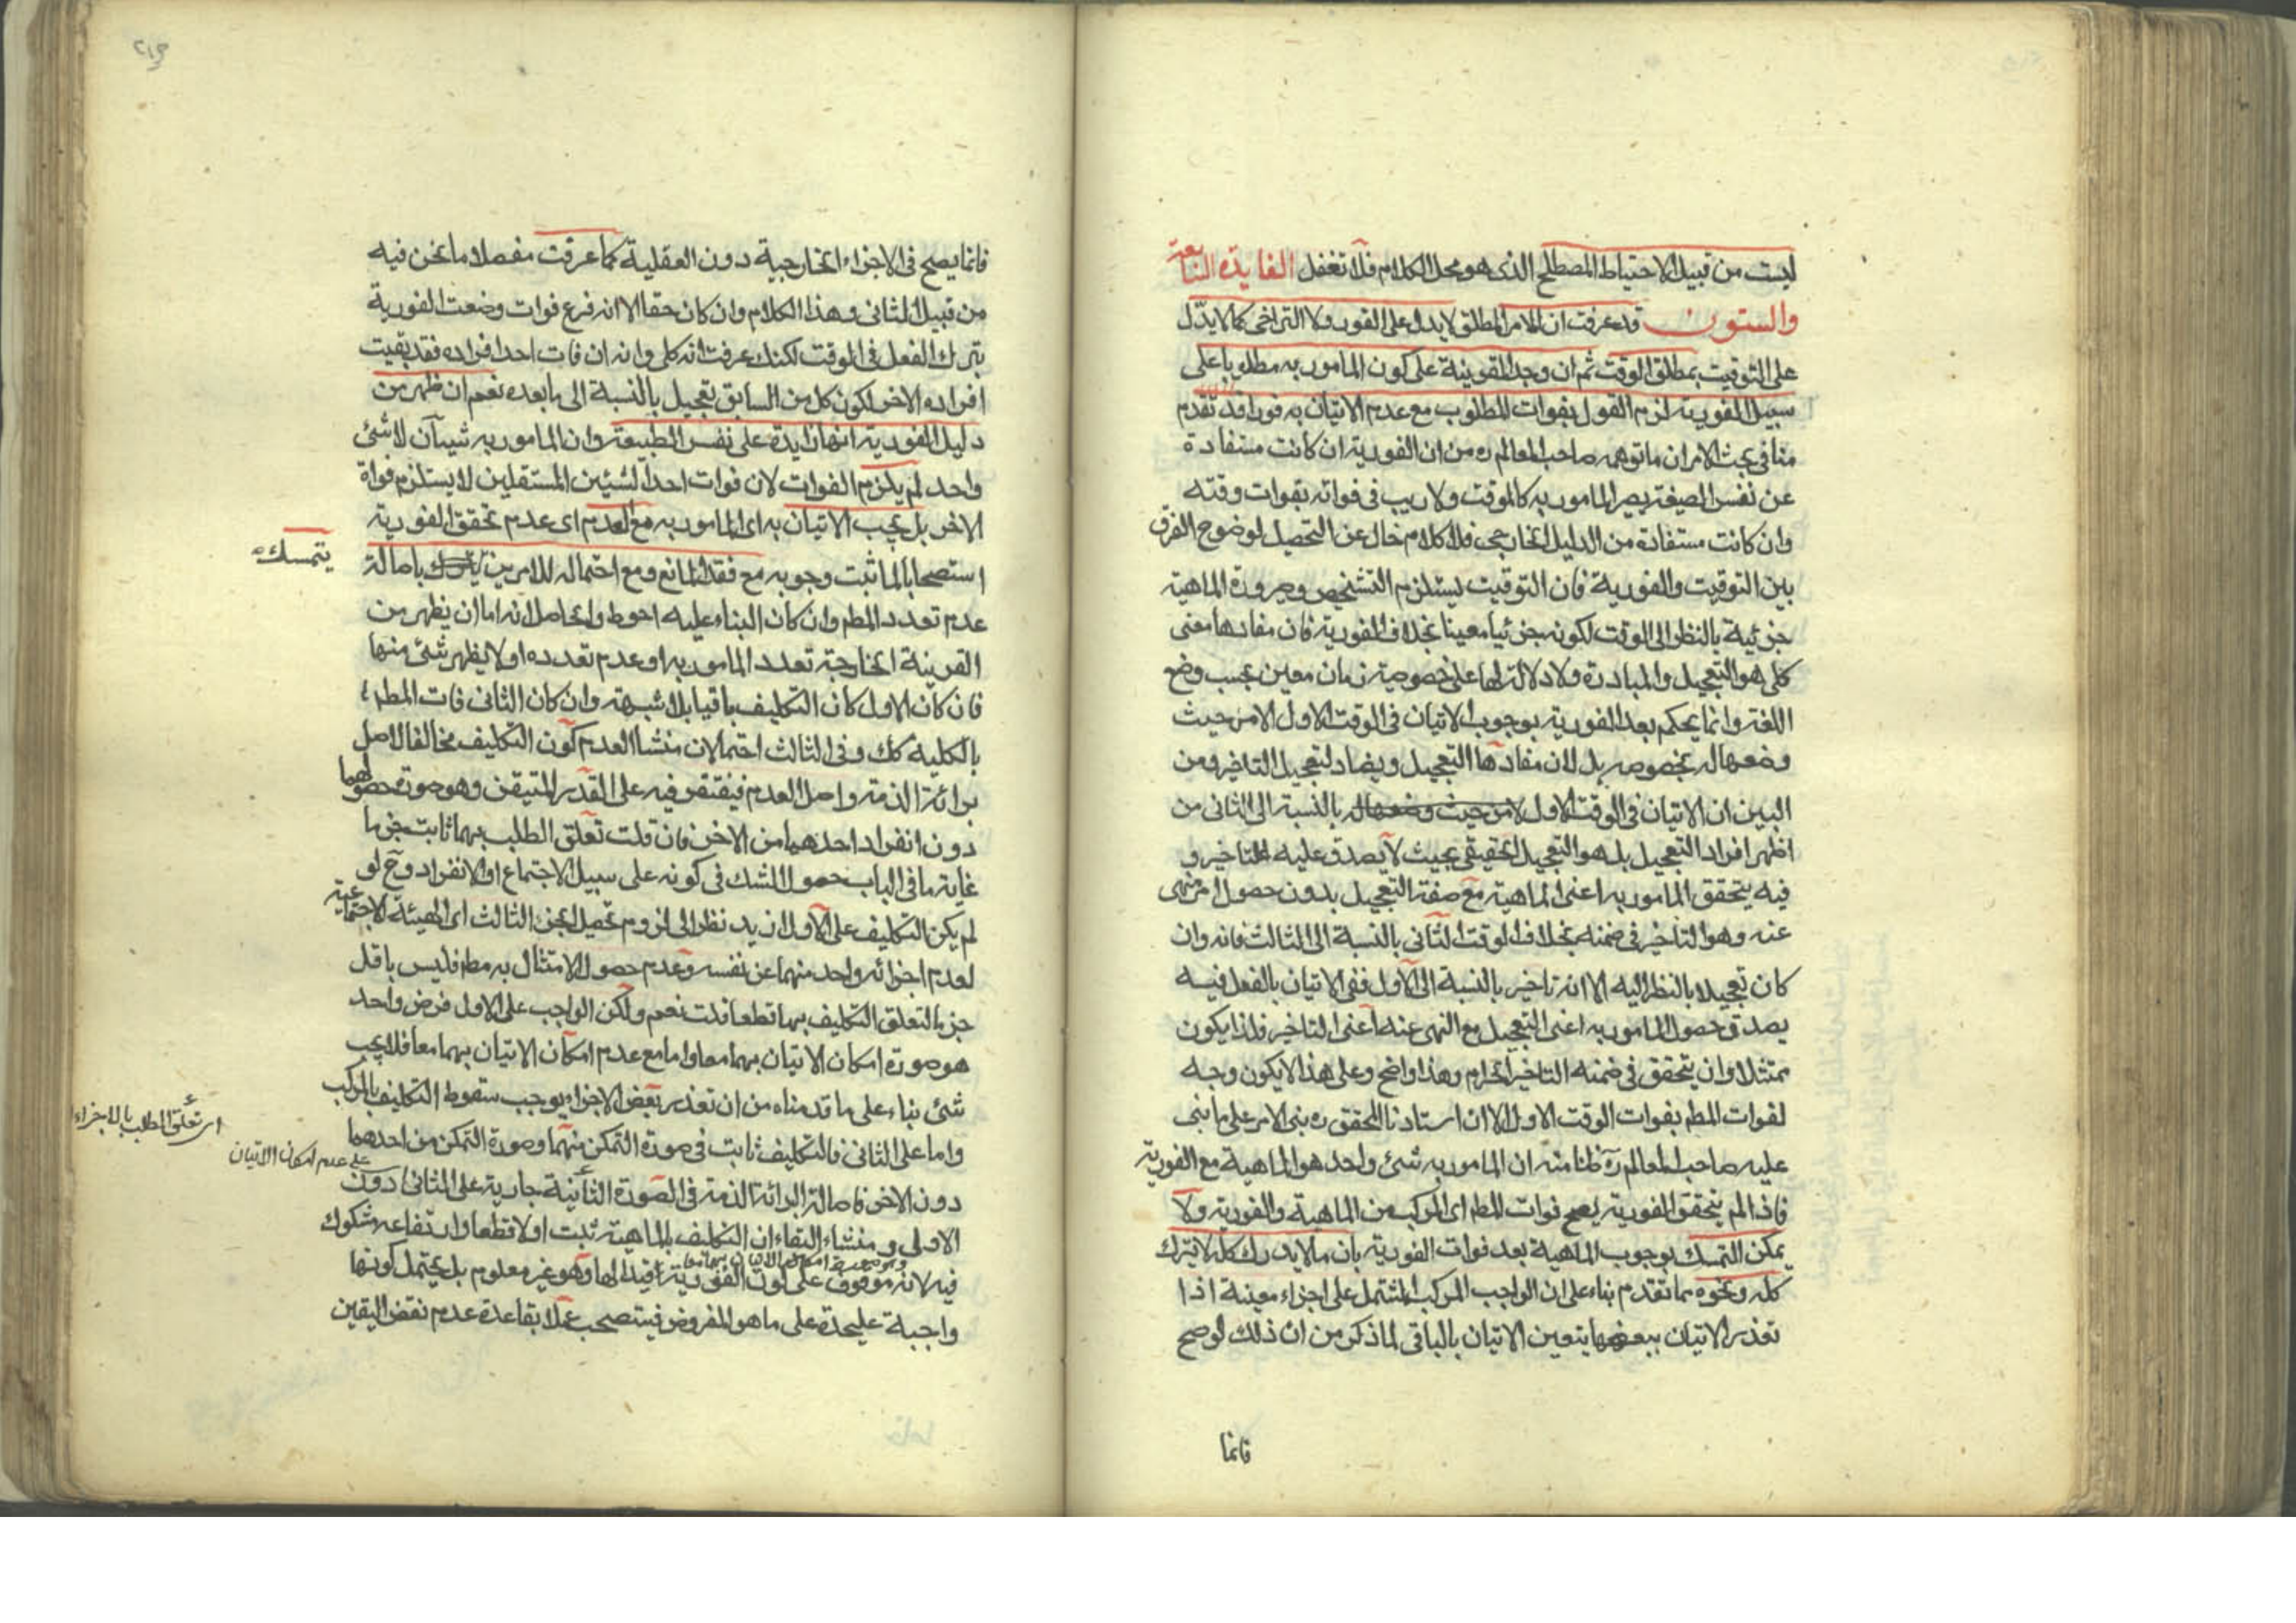 ليست من قبيل الاحتياط المصطلح الذى هو محل الكلام فلا تغفل الفايدة التاسعة
والستون قد عرفت ان الامر المطلق لا يدل على الفور ولا التراخى كما لا يدّل
على التوقيت بمطلق الوقت ثم ان وجد القرينة على كون المامور به مطلوبا على
سبيل الفورية لزم القول بفوات المطلوب مع عدم الاتيان به فورا قد تقدم
منا فى بحث الامر ان ما توهمه صاحب المعالم ره من ان الفورية ان كانت مستفادة
عن نفس الصيغة يصير المامور به كالموقت ولا ريب فى فواته بفوات وقته
وان كانت مستفادة من الدليل الخارجى فلا كلام خال عن التحصيل لوضوح الفرق
بين التوقيت والفورية فان التوقيت يستلزم التشخيص وصرورة الماهية
جزئية بالنظر الى الوقت لكونه جزئيا معينا بخلاف الفورية فان مفادها معنى
كلى هو التعجيل والمبادرة ولا دلالة لها على خصوصية زمان معين بحسب وضع
اللغة وانما يحكم بعد الفورية بوجوب الاتيان فى الوقت الاول لا من حيث
وضعها له بخصوصه بل لان مفادها التعجيل ويضاد التعجيل التاخير ومن
البين ان الاتيان فى الوقت الاول لا من حيث وضعها له بالنسبة الى الثانى من
اظهر افراد التعجيل بل هو التعجيل الحقيقى بحيث لا يصدق عليه التاخير و
فيه يتحقق المامور به اعنى الماهية مع صفة التعجيل بدون حصول امر منهى
عنه وهو التاخير فى ضمنه بخلاف الوقت الثانى بالنسبة الى الثالث فانه وان
كان تعجيلا بالنظر اليه الا انه تاخير بالنسبة الى الاول ففى الاتيان بالفعل فيه
يصدق حصول المامور به اعنى التعجيل مع النهى عنه اعنى التاخير فلذا يكون
ممتثلا وان يتحقق فى ضمنه التاخير الحرام وهذا واضح وعلى هذا لا يكون وجه
لفوات المط بفوات الوقت الاول الا ان استادنا المحقق ره بنى الامر على ما بنى
عليه صاحب المعالم ره ظنا منه ان المامور به شىء واحد هو الماهية مع الفورية
فاذا لم يتحقق الفورية يصح فوات المط اى المركب من الماهية والفورية ولا
يمكن التمسك بوجوب الماهية بعد فوات الفورية بان ما لا يدرك كله لا يترك
كله ونحوه مما تقدم بناء على ان الواجب المركب المشتمل على اجزاء معينة اذا
تعذر الاتيان ببعضها يتعين الاتيان بالباقى لما ذكر من ان ذلك لو صح
فانما
فانما يصح فى الاجزاء الخارجية دون العقلية كما عرفت مفصلا ما نحن فيه
من قبيل الثانى وهذا الكلام وان كان حقا الا انه فرع فوات وضعت الفورية
بترك الفعل فى الموقت لكنك عرفت انه كلى وانه ان فات احد افراده فقد بقيت
افراده الاخر لكون كل من السابق تعجيل بالنسبة الى ما بعده نعم ان ظهر من
دليل الفورية انها زايدة على نفس الطبيعة وان المامور به شيئان لا شئ
واحد لم يلزم الفوات لان فوات احد الشيئين المستقلين لا يستلزم فواة
الاخر بل يجب الاتيان به اى المامور به مع العدم اى عدم تحقق الفورية
استصحابا لما ثبت وجوبه مع فقد المانع ومع احتماله للامرين باصالة
يتمسك
عدم تعدد المط وان كان البناء عليه احوط والحاصل انه اما ان يظهر من
القرينة الخارجة تعدد المامور به او عدم تعدده او لا يظهر شئ منها
فان كان الاول كان التكليف باقيا بلا شبهة وان كان الثانى فات المط
بالكلية كك وفى الثالث احتمالان منشا العدم كون التكليف مخالفا لاصل
برائة الذمة واصل العدم فيقتقر فيه على القدر المتيقن وهو صورة حصولهما
دون انفراد احدهما من الاخر فان قلت تعلق الطلب بهما ثابت جزما
غاية ما فى الباب حصول الشك فى كونه على سبيل الاجتماع او الانفراد وح لو
لم يكن التكليف على الاول ازيد نظرا الى لزوم تحصيل الجزء الثالث اى الهيئة الاجتماعية
لعدم اجزائه واحد منهما عن نفسه وعدم حصول الامتثال به مط فليس باقل
جزما لتعلق التكليف بهما قطعا قلت نعم ولكن الواجب على الاول فرض واحد
هو صورة امكان الاتيان بهما معا واما مع عدم امكان الاتيان بهما معا فلا يجب
شئ بناء على ما قدمناه من ان تعذر بعض الاجزاء يوجب سقوط التكليف بالمركب
واما على الثانى فالتكليف ثابت فى صورة التمكن منهما وصورة التمكن من احدهما
اى تعلق الطلب بالاجزاء
على عدم امكان الاتيان
دون الاخر فاصالة البرائة الذمة فى الصورة الثانية جارية على الثانى دون
الاولى ومنشاء البقاء ان التكليف بالماهية ثبت اولا قطعا وارتفاعه مشكوك
فيه لانه موقوف على كون الفورية قيدا لها وهو غير معلوم بل يحتمل كونها
واجبة عليحدة على ما هو المفروض فيستصحب عملا بقاعدة عدم نقض اليقين